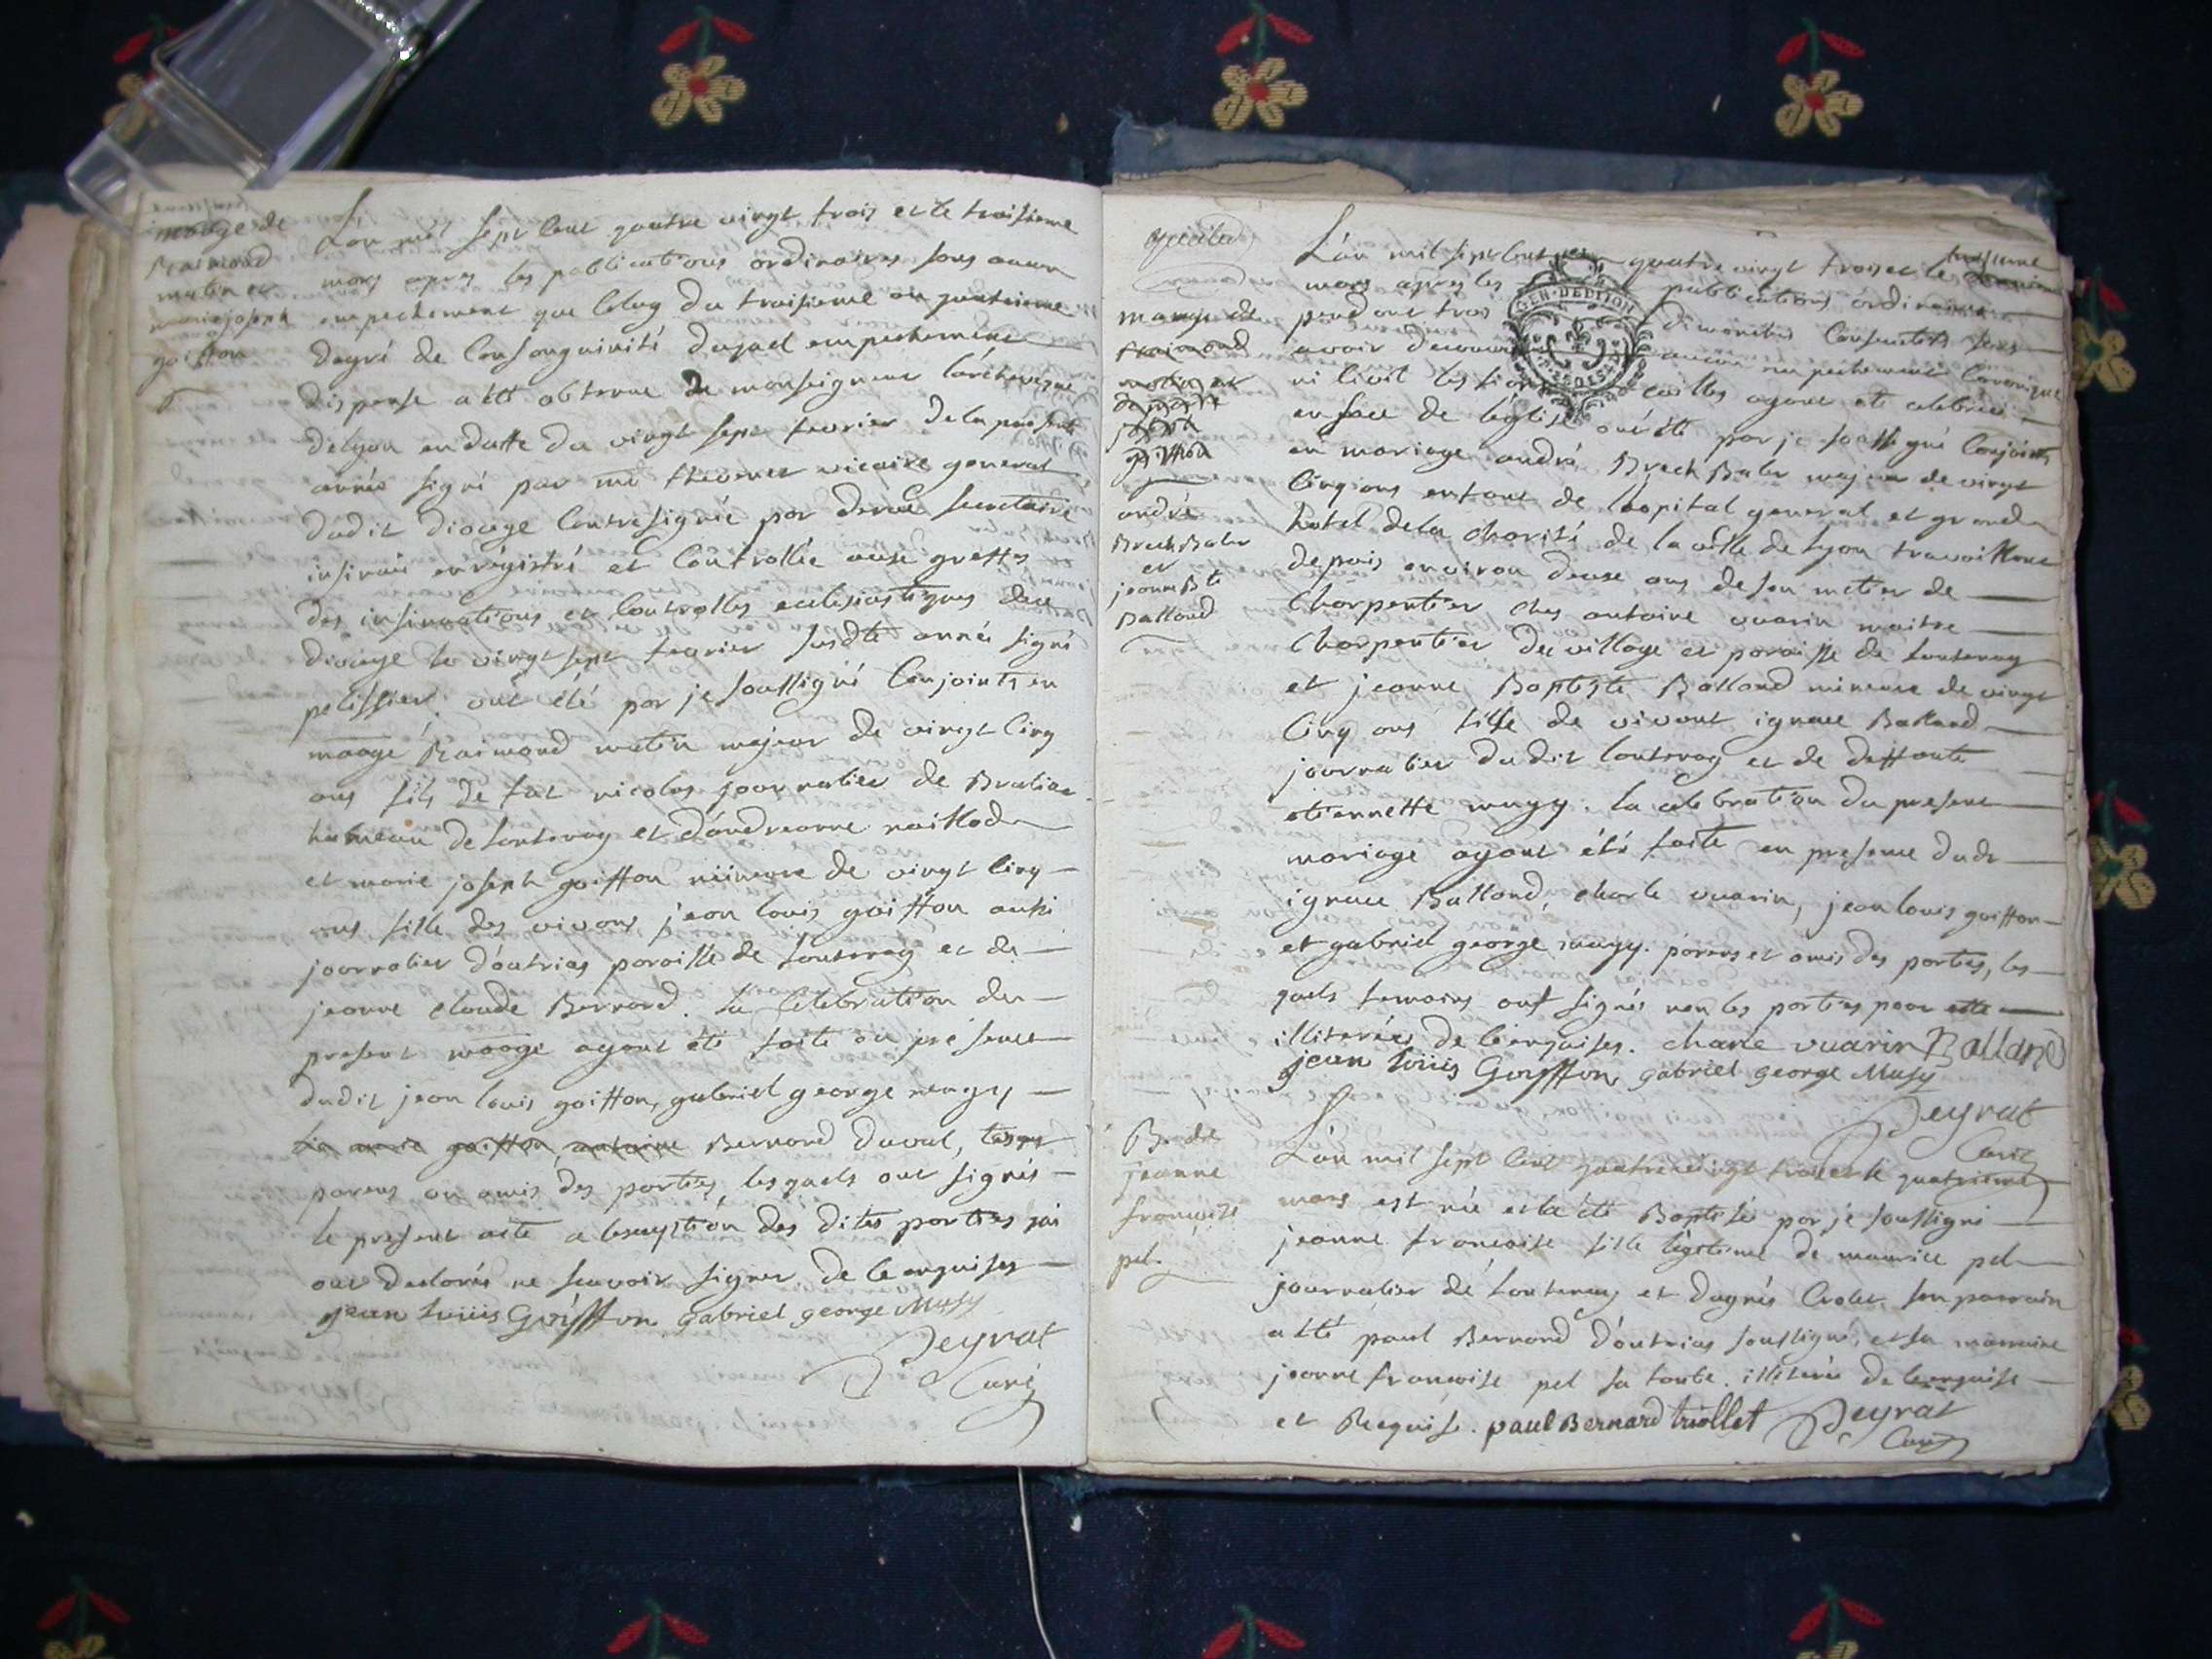 mariage de
Raimond
mutin et
marie joseph
goiffon
L'an mil sept cent quatre vingt trois et le troisieme
mars apres les publications ordinaires sans aucun
empechement que celuy du troisieme au quatrieme
degré de consanguinité duquel empechement
dispense a été obtenue de monseigneur l'archeveque
de lyon en datte du vingt sept fevrier de la présente
année signé par mr thevenet vicaire general
dudit diocèze contresignée par secretaire
insinuée enrégistré et controllée aux greffes
des insinuations et controlles eclesiastiques dud
diocèze le vingt sept fevrier susdte année signé
pelissier. ont été par je soussigné conjoints en
mariage Raimond mutin majeur de vingt cinq
ans fils de feu nicolas journalier de
hameau de Lantenay et d'andreanne
et marie joseph goiffon mineure de vingt cinq
ans fille des vivans jean louis goiffon aussi
journalier d'outrias paroisse de Lantenay et de
jeanne claude Bernard. la célébration du
present mariage ayant été faite en présence
dudit jean louis goiffon, gabriel george mugy
goiffon, antoine Bernard duval, tous
parens ou amis des parties, lesquels ont signés
le present acte a lexception des dites parties qui
ont declarés ne scavoir signer de ce enquises
jean louis Goÿffon Gabriel george Musy
Peyrat
Curé
mariage de
Raimond
mutin et
de marie
joseph
goiffon
andré
BrechBaler
et
jeanne Bte
Balland
L'an mil sept cent quatre vingt trois et le troisieme
mars après les publications ordinaires
pendant trois dimanches consecutifs sans
avoir decouvert aucun empechement canonique
ni civil les fiancailles ayant été célébrées
en face de l'église ont été par je soussigné conjoints
en mariage andré BrechBaler majeur de vingt
cinq ans enfant de l'hopital general et grand
hotel de la charité de la ville de lyon travaillant
depuis environ douse ans de son metier de
charpentier chez antoine vuarin maitre
charpentier du village et paroisse de Lantenay
et jeanne Baptiste Balland mineure de vingt
cinq ans fille de vivant ignace Balland
journalier dudit Lantenay et de deffunte
etiennette mugy. la celebration du present
mariage ayant été faite en presence dudt
ignace Balland, charle vuarin, jean louis goiffon
et gabriel george mugy. parens et amis des parties, les
quels temoins ont signés non les parties pour etre
illiterées de ce enquises. charle vuarin Balland
jean louis Goyffon, Gabriel george Musy
Peyrat
Curé
B. de
jeanne
francoise
pel
L'an mil sept cent quatre vingt trois et le quatrieme
mars est née et a été Baptisée par je soussigné
jeanne francoise fille légitime de maurice pel
journalier de Lantenay et d'agnès son parrain
a été paul Bernard d'outrias soussigné, et sa marraine
jeanne francoise pel sa tante. illiterée de ce enquise
et Requise. paul Bernard triollet Peyrat
Curé